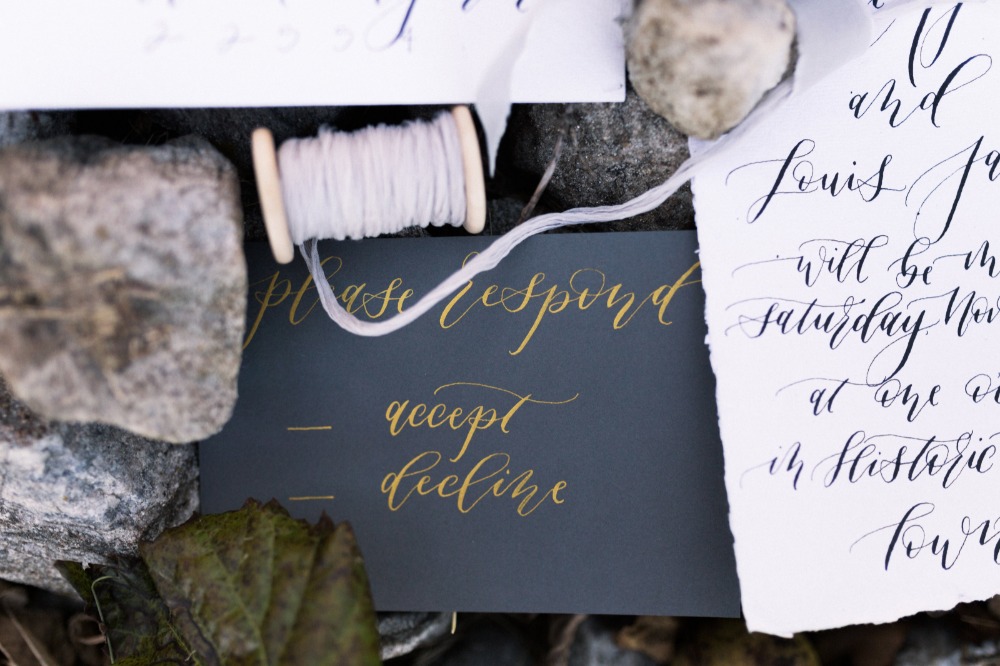 please respond
accept
decline
and
Louis
will be
saturday Nov
at one
in Historic
Town